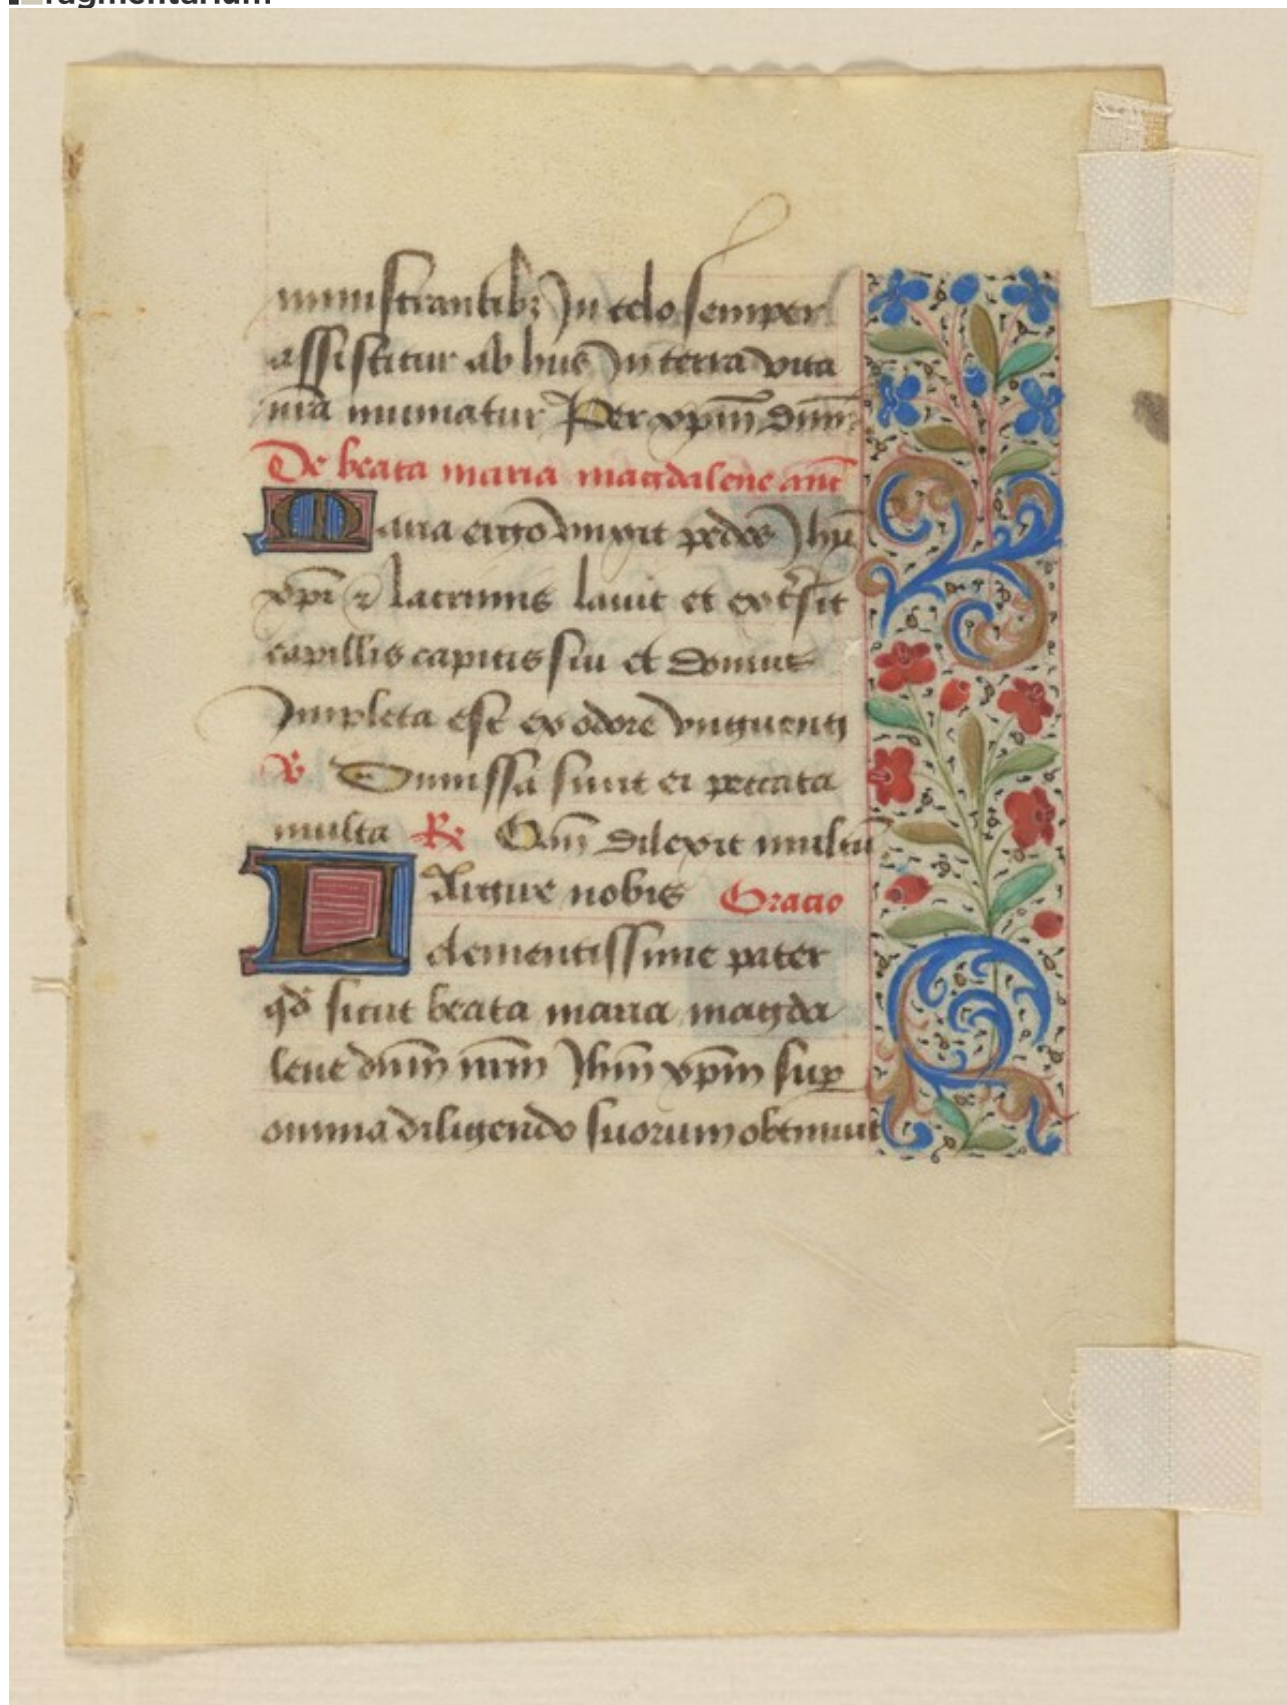 fragmentarium
ministrantibꝫ In celo semper
assistitur ab hiis In terra vita
nr̃a muniatur Per xp̃m dñm
De beata maria magdalene ant̃
Maria ergo vnxit pedes Jhũ
xp̃i ⁊ lacrimis lauit et ext̉sit
capillis capitis sui et domus
Impleta est ex odore vnguenti
℣ Dimissa sunt ei peccata
multa ℟ Qm̃ dilexit multũ
Largire nobis Oracio
clementissime pater
qd̃ sicut beata maria magda
lene dñm nr̃m Jhm̃ xp̃m suꝑ
omnia diligendo suorum obtinuit